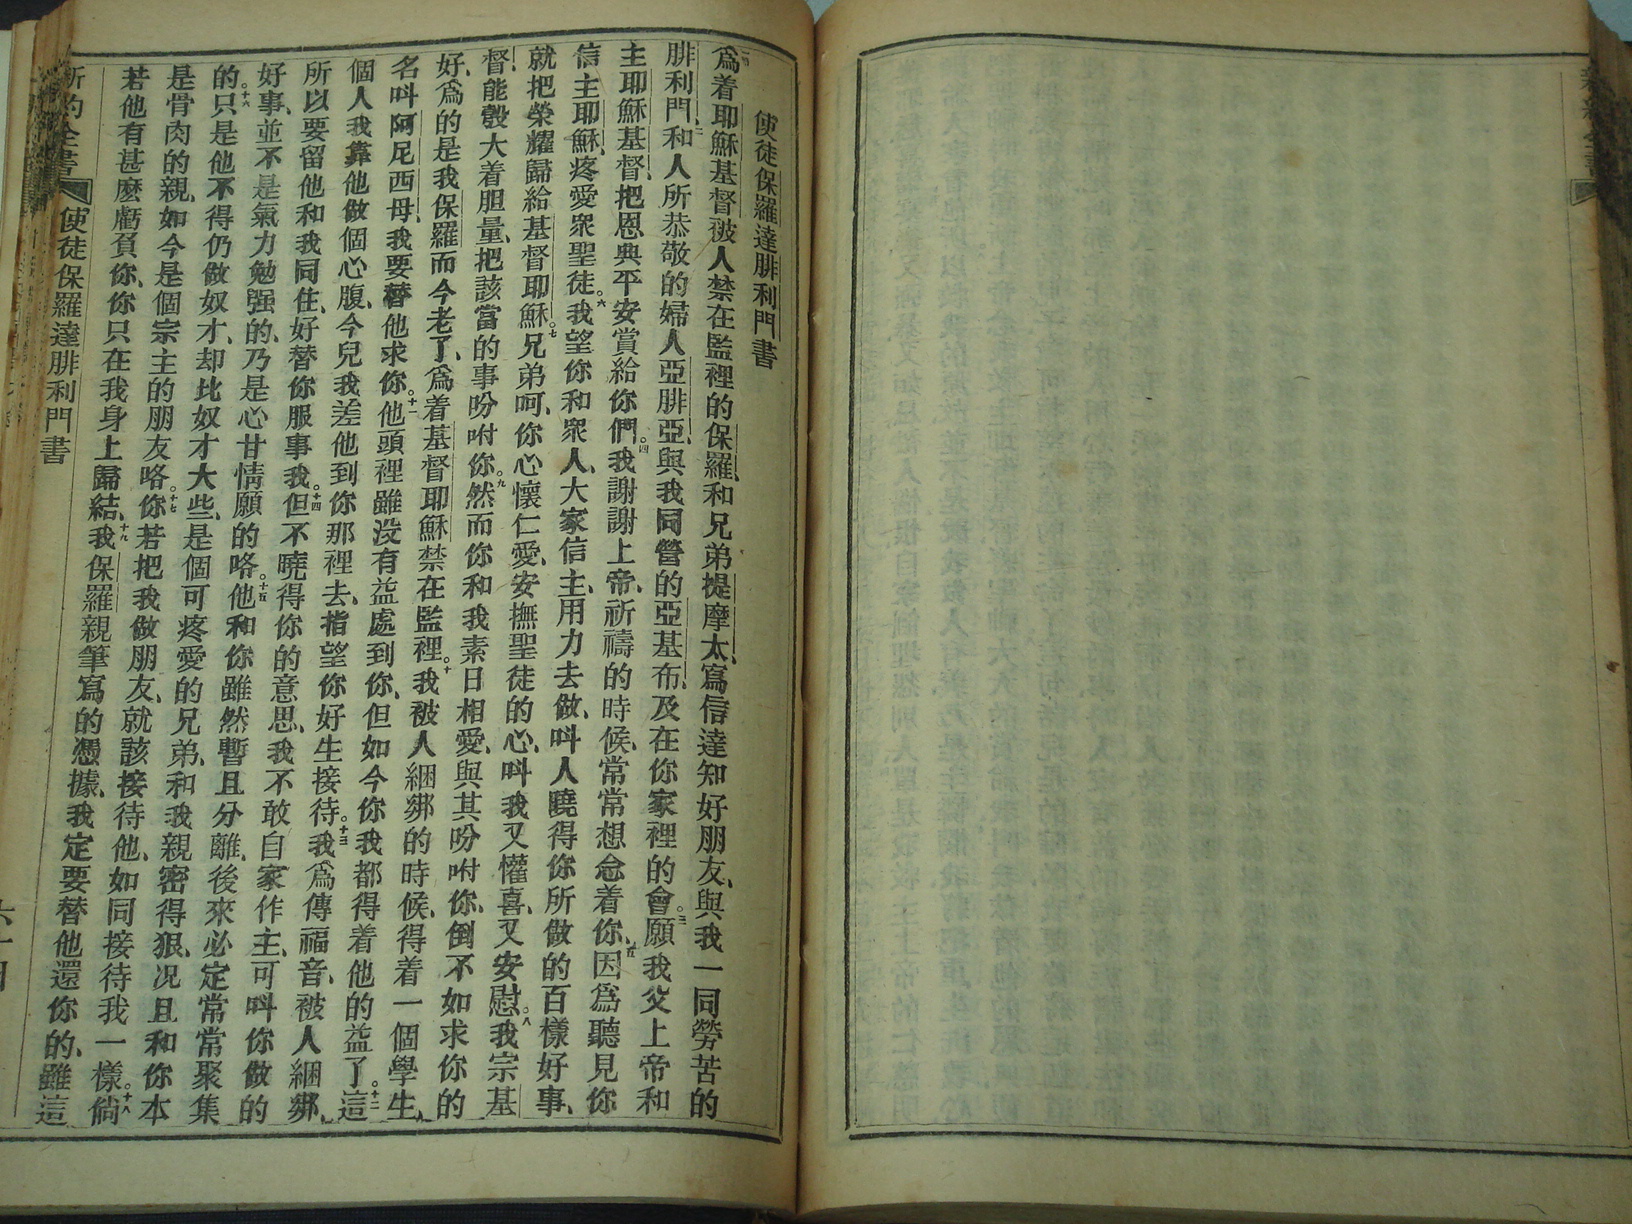 使徒保羅達腓利門書
一爲着耶穌基督、被人禁在監裡的保羅、和兄弟提摩太、寫信達知好朋友、與我一同勞苦的
腓利門、二和人所恭敬的婦人亞腓亞、與我同營的亞基布、及在你家裡的會。三願我父上帝和
主耶穌基督、把恩典平安賞給你們。四我謝謝上帝、祈禱的時候、常常想念着你、五因爲聽見你
信主耶穌、疼愛衆聖徒。六我望你和衆人、大家信主、用力去做、叫人曉得你所做的百樣好事、
就把榮耀歸給基督耶穌。七兄弟呵、你心懷仁愛、安撫聖徒的心、叫我又懽喜、又安慰。八我宗基
督、能彀大着胆量、把該當的事吩咐你。九然而你和我素日相愛、與其吩咐你、倒不如求你的
好、爲的是我保羅而今老了、爲着基督耶穌禁在監裡。十我被人綑綁的時候、得着一個學生、
名叫阿尼西母、我要替他求你。十一他頭裡雖没有益處到你、但如今你我都得着他的益了。十二這
個人我靠他做個心腹、今兒我差他到你那裡去、指望你好生接待。十三我爲傳福音、被人綑綁、
所以要留他和我同住、好替你服事我。十四但不曉得你的意思、我不敢自家作主、可叫你做的
好事、並不是氣力勉强的、乃是心甘情願的咯。十五他和你雖然暫且分離、後來必定常常聚集
的。十六只是他不得仍做奴才、却比奴才大些、是個可疼愛的兄弟、和我親密得狠、况且和你本
是骨肉的親、如今是個宗主的朋友咯。十七你若把我做朋友、就該接待他、如同接待我一樣。十八倘
若他有甚麼虧負你、你只在我身上歸結、十九我保羅親筆寫的憑據、我定要替他還你的、雖這
新約全書 使徒保羅達腓利門書